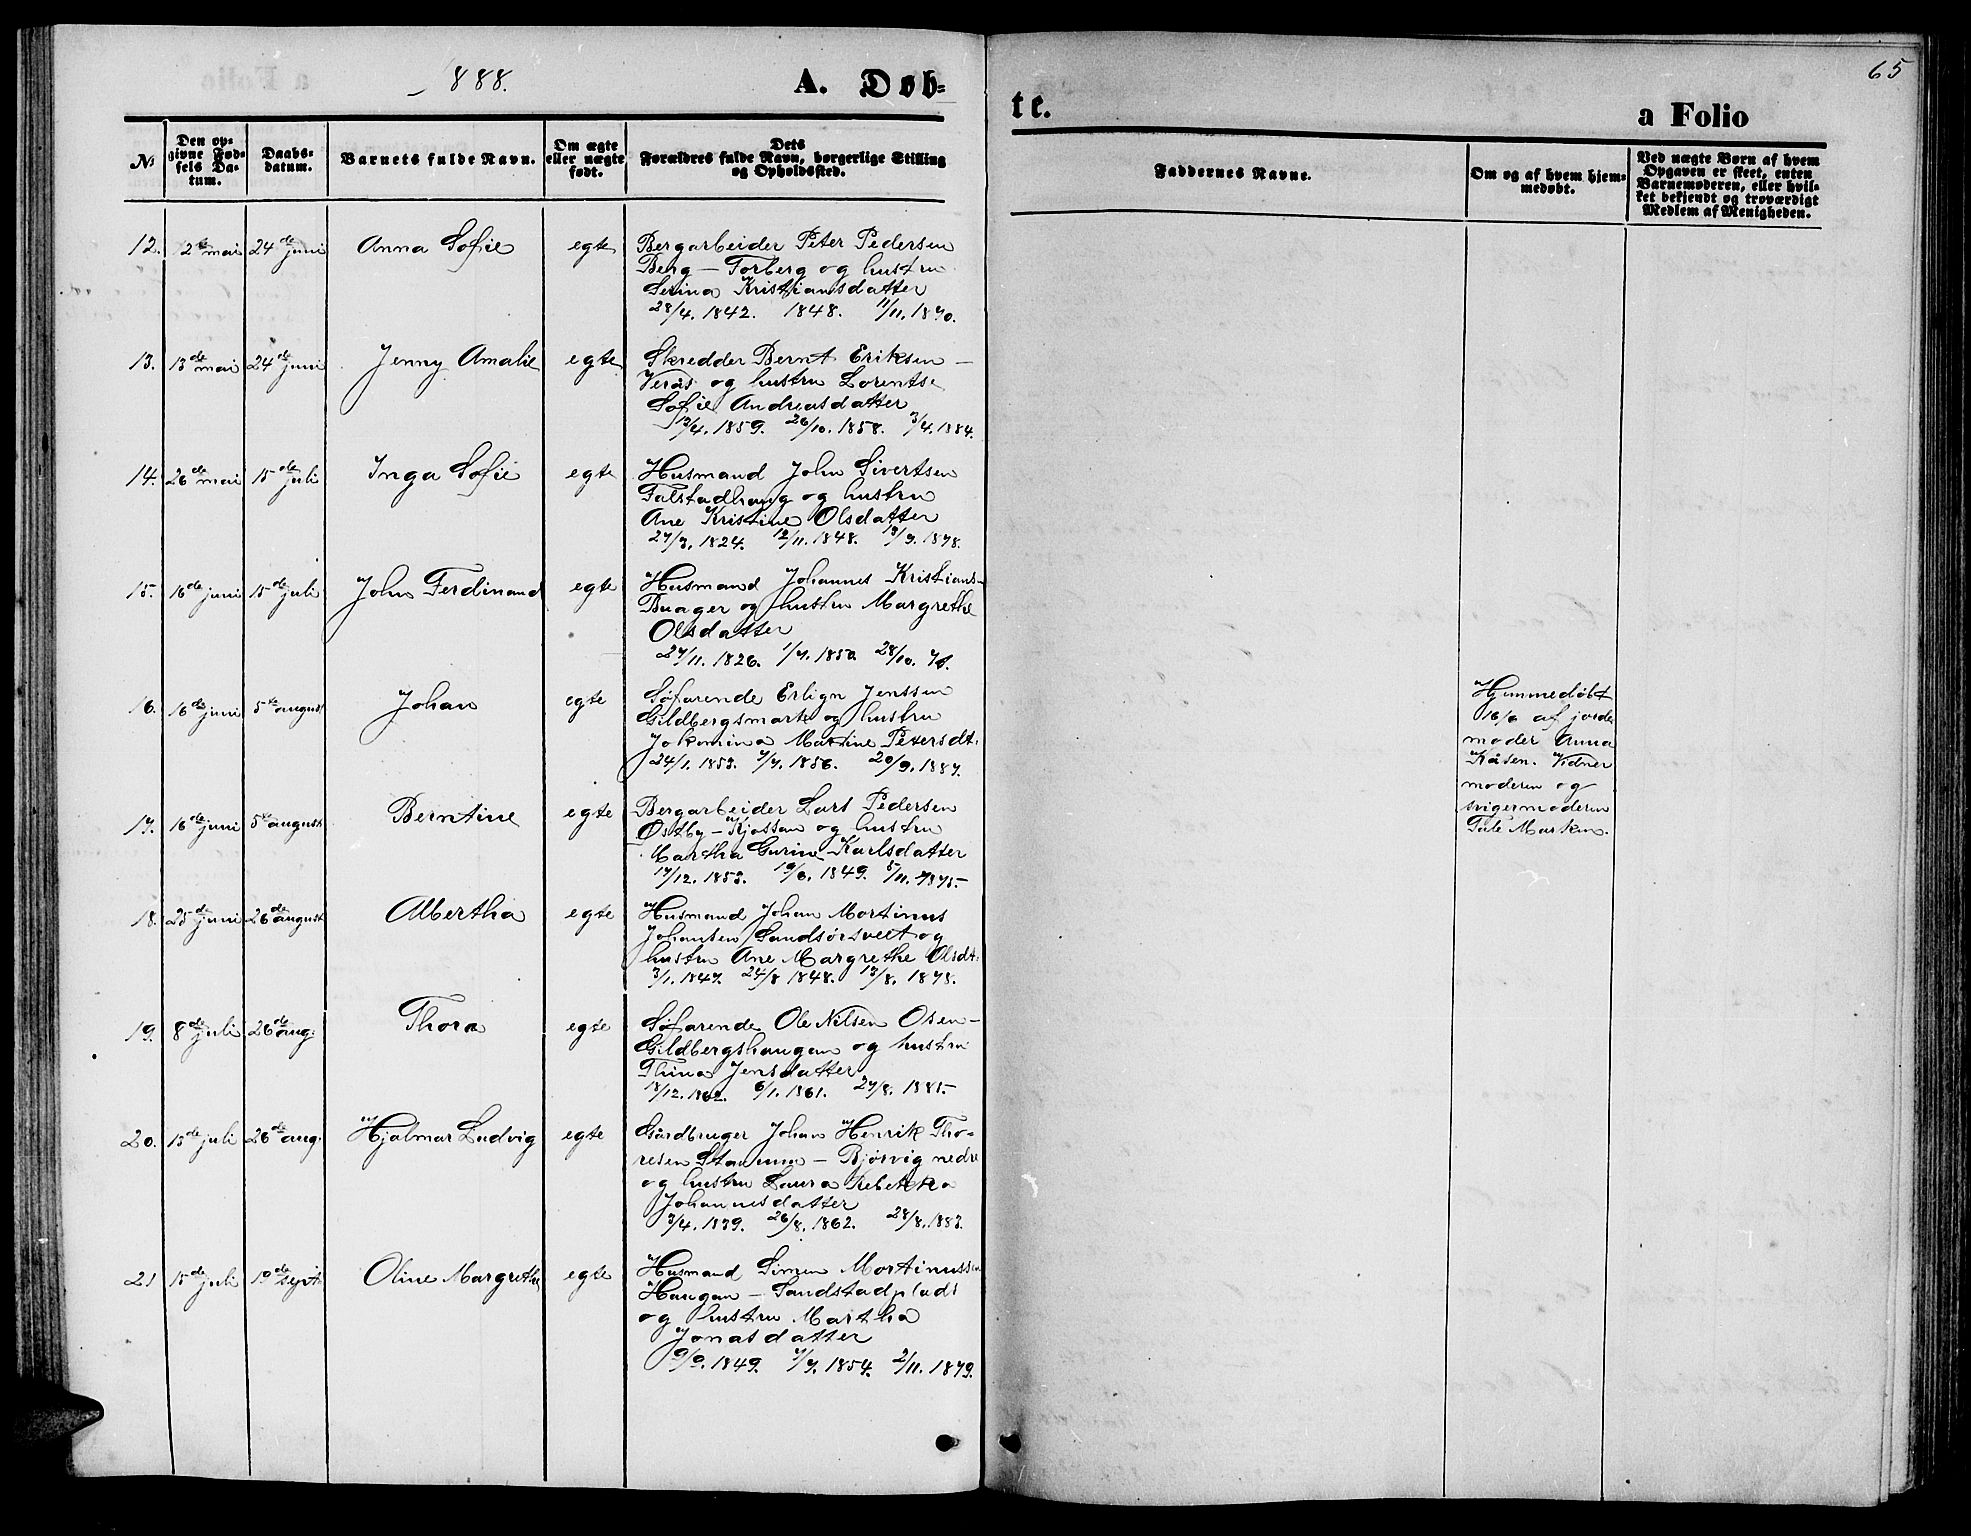 888.
A. Døb=
te.
a Folio
65
No
Den op=
givne Fød=
sels Da=
tum.
Daabs=
datum.
Barnets fulde Navn.
Om ægte
eller uægte
født.
Dets
Forældres fulde Navn, borgerlige Stilling
og Opholdssted.
Faddernes Navne.
Om og af hvem hjem=
medøbt.
Ved uægte Børn af hvem
Opgaven er skeet, enten
Barnemoderen, eller hvil=
ket bekjendt og troværdigt
Medlem af Menigheden.
12. 2de mai 24de juni Anna Sofie egte Bergarbeider Peter Pedersen
Berg – Forberg og hustru
Serina Kristiansdatter
28/4. 1842. 1848. 11/11. 1870.
13. 13de mai 24de juni Jenny Amalie egte Skredder Bernt Eriksen –
Verås og hustru Lorentse
Sofie Andreasdatter
12/4. 1859. 26/10. 1858. 3/4. 1884.
14. 26de mai 15de juli Inga Sofie egte Husmand John Sivertsen
Falstadhaug og hustru
Ane Kristine Olsdatter
27/3. 1824. 12/11. 1848. 1878.
15. 16de juni 15de juli John Ferdinand egte Husmand Johannes Kristians–
Buager og hustru Margrethe
Olsdatter
27/11. 1826. 1/7. 1850. 28/10.
16. 16de juni 5te august Johan egte Søfarende Erlign Jenssen
Gildbergsmarte og hustru
Jokomina Martine Petersdt.
24/1. 1853. 7/7. 1856. 20/9. 1887.
Hjemmedøbt
16/6 af jorde
moder Anna
Kåsen. Vidner
moderen og
svigermoderen
17. 16de juni 5te august Berntine egte Bergarbeider Lars Pedersen
Østby – og hustru
Martha Gurine Karlsdatter
17/12. 1853. 19/6. 1849. 5/11. 1875.
18. 25de juni 26de august Albertha egte Husmand Johan Mortinus
Johansen Sandsørsveet og
hustru Ane Margrethe Olsdt.
3/1. 1847. 24/8 1848. 13/8. 1878.
19. 8de juli 26de aug. Thora egte Søfarende Ole Nilsen Osen –
Gildbergshaugan og hustru
Thina Jensdatter
18/12. 1862. 6/1. 1861. 27/8. 1885.
20. 15de juli 26de aug. Hjalmar Ludvig egte Gårdbruger Johan Henrik Tho–
resen Stamnun – Bjørvig nedre
og hustru Laura Rebekka
Johannesdatter
3/4. 1839. 26/8. 1862. 28/8. 1883.
21 15de juli de sept. Oline Margrethe egte Husmand Simen Mortinussen
Haugan – Sandstadplads
og hustru Martha
Jonasdatter
9/9. 1849. 7/7. 1854. 2/11. 1879.